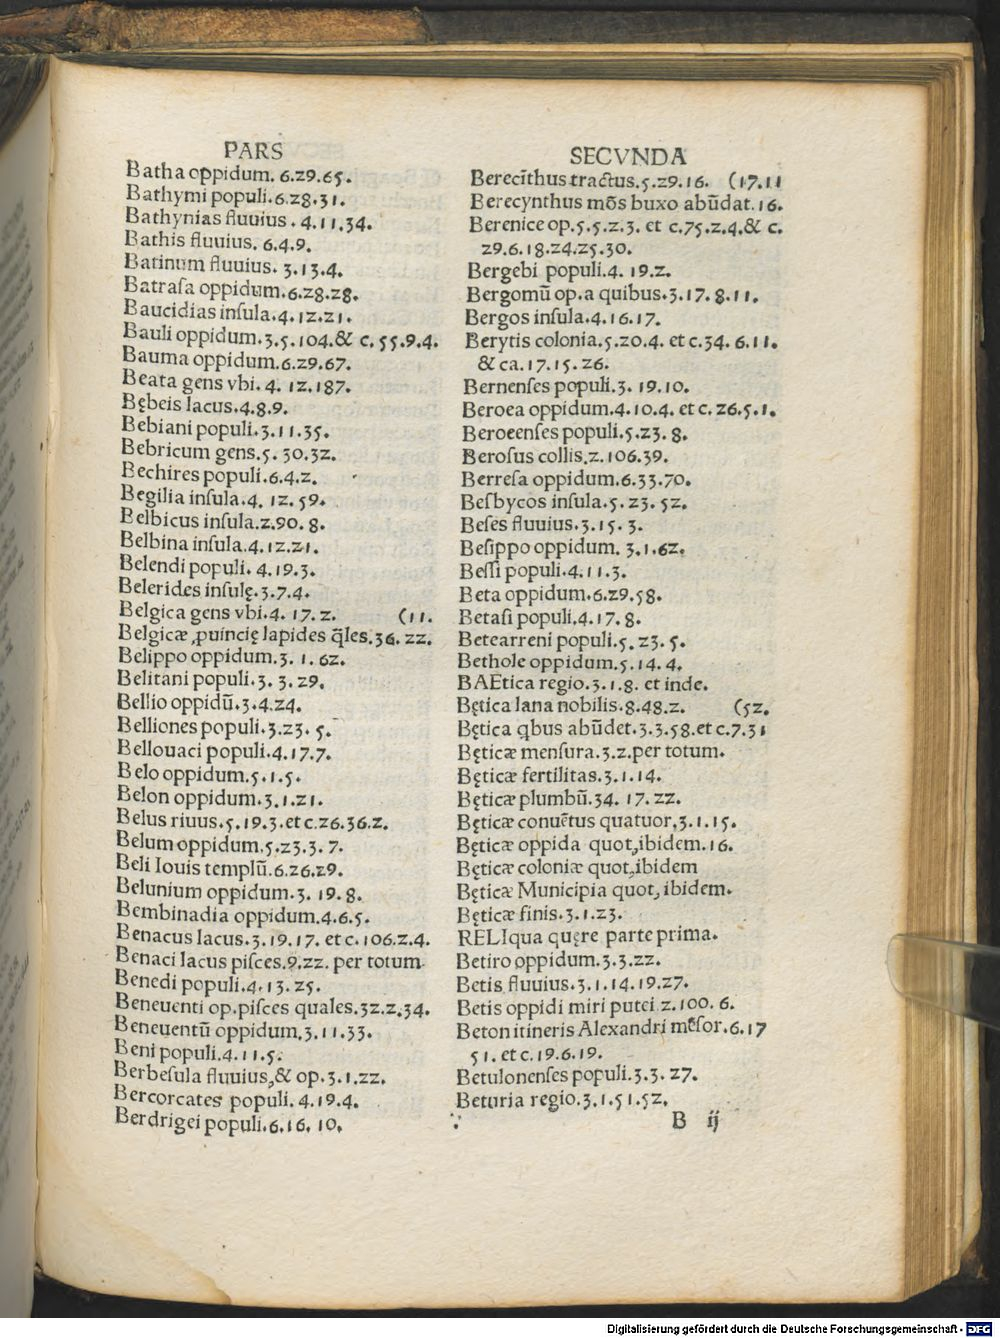 PARS
Batha oppidum. 6.29.65.
Bathymi populi.6.28.31.
Bathynias fluuius . 4.11.34.
Bathis fluuius. 6.4.9.
Batinum fluuius. 3.13.4.
Batrasa oppidum.6.28.28.
Baucidias insula.4.12.21.
Bauli oppidum.3.5.104.& c.55.9.4.
Bauma oppidum.6.29.67.
Beata gens vbi.4. 12.187.
Bębeis lacus.4.8.9.
Bebiani populi.3.11.35.
Bebricum gens.5. 30.32.
Bechires populi.6.4.2.
Begilia insula.4. 12. 59.
Belbicus insula.2.90. 8.
Belbina insula.4.12.21.
Belendi populi. 4.19.3.
Belerides insulę.3.7.4.
Belgica gens vbi.4. 17. 2. (11.
Belgicæ ꝓuincię lapides q̃les.36. 22.
Belippo oppidum.3. 1. 62.
Belitani populi.3. 3.29.
Bellio oppidū.3.4.24.
Belliones populi.3.23. 5.
Bellouaci populi.4.17.7.
Belo oppidum.5.1.5.
Belon oppidum.3.1.21.
Belus riuus.5.19.3.et c.26.36.2.
Belum oppidum.5.23.3. 7.
Beli Iouis templū.6.26.29.
Belunium oppidum.3. 19.8.
Bembinadia oppidum.4.6.5.
Benacus lacus.3.19.17. et c.106.2.4.
Benaci lacus pisces.9.22. per totum.
Benedi populi.4.13. 25.
Beneuenti op.pisces quales.32.2.34.
Beneuentū oppidum.3.11.33.
Beni populi.4.11.5.
Berbesula fluuius,& op.3.1.22.
Bercorcates populi. 4.19.4.
Berdrigei populi.6.16. 10.
SECVNDA
Berecīthus tractus.5.29.16. (17.11
Berecynthus mōs buxo abūdat.16.
Berenice op.5.5.2.3. et c.75.2.4.& c.
29.6.18.24.25.30.
Bergebi populi.4. 19.2.
Bergomū op.a quibus.3.17. 8.11.
Bergos insula.4.16.17.
Berytis colonia.5.20.4. et c.34. 6.11.
& ca.17.15.26.
Bernenses populi.3. 19.10.
Beroea oppidum.4.10.4. et c.26.5.1.
Beroeenses populi.5.23. 8.
Berosus collis.2. 106.39.
Berresa oppidum.6.33.70.
Besbycos insula.5. 23. 52.
Beses fluuius.3.15. 3.
Besippo oppidum. 3.1.62.
Bessi populi.4.11.3.
Beta oppidum.6.29.58.
Betasi populi.4.17. 8.
Betearreni populi.5. 23. 5.
Bethole oppidum.5.14. 4.
BAEtica regio.3.1.8. et inde.
Bętica lana nobilis.8.48.2. (52.
Bętica qbus abūdet.3.3.58.et c.7.31
Bęticæ mensura.3.2.per totum.
Bęticæ fertilitas.3.1.14.
Bęticæ plumbū.34. 17. 22.
Bęticæ conuētus quatuor.3.1.15.
Bęticæ oppida quot,ibidem.16.
Bęticæ coloniæ quot,ibidem
Bęticæ Municipia quot, ibidem.
Bęticæ finis.3.1.23.
RELIqua quęre parte prima.
Betiro oppidum.3.3.22.
Betis fluuius.3.1.14.19.27.
Betis oppidi miri putei 2.100. 6.
Beton itineris Alexandri mēsor.6.17
51. et c.19.6.19.
Betulonenses populi.3.3. 27.
Beturia regio.3.1.51.52.
B ij
Digitalisierung gefördert durch die Deutsche Forschungsgemeinschaft - DFG